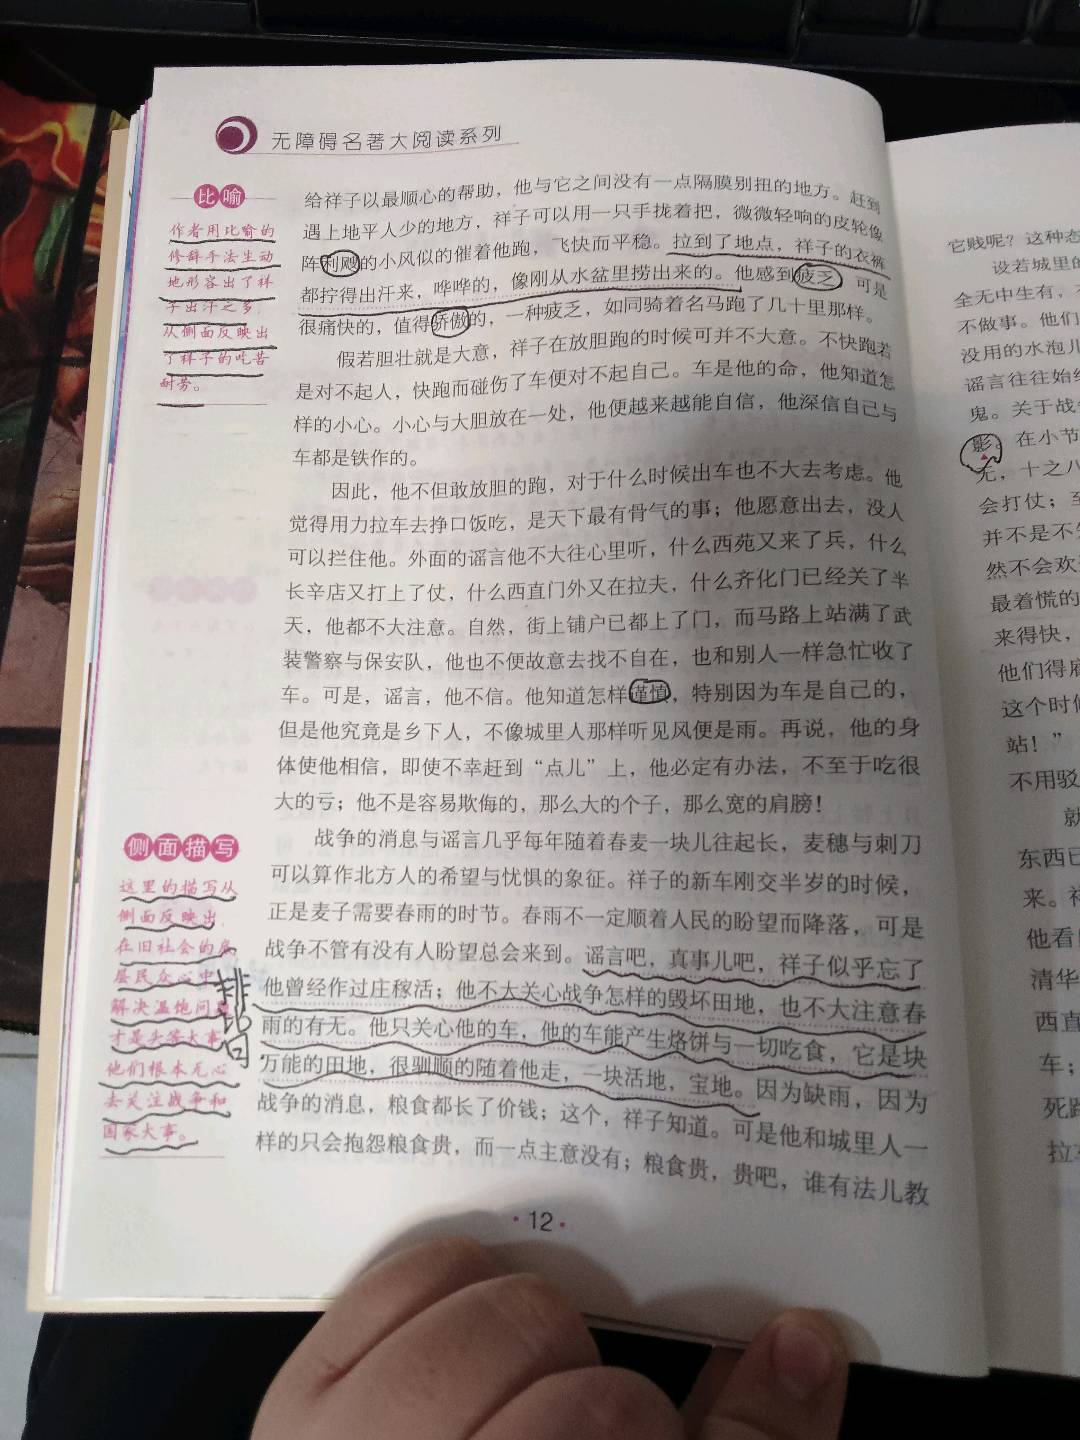 无障碍名著大阅读系列
比喻
作者用比喻的
修辞手法生动
地形容出了祥
子出汗之多，
从侧面反映出
了祥子的吃苦
耐劳。
给祥子以最顺心的帮助，他与它之间没有一点隔膜别扭的地方。赶到
遇上地平人少的地方，祥子可以用一只手拢着把，微微轻响的皮轮像
阵利飕的小风似的催着他跑，飞快而平稳。拉到了地点，祥子的衣裤
都拧得出汗来，哗哗的，像刚从水盆里捞出来的。他感到疲乏，可是
很痛快的，值得骄傲的，一种疲乏，如同骑着名马跑了几十里那样。
假若胆壮就是大意，祥子在放胆跑的时候可并不大意。不快跑若
是对不起人，快跑而碰伤了车便对不起自己。车是他的命，他知道怎
样的小心。小心与大胆放在一处，他便越来越能自信，他深信自己与
车都是铁作的。
因此，他不但敢放胆的跑，对于什么时候出车也不大去考虑。他
觉得用力拉车去挣口饭吃，是天下最有骨气的事；他愿意出去，没人
可以拦住他。外面的谣言他不大往心里听，什么西苑又来了兵，什么
长辛店又打上了仗，什么西直门外又在拉夫，什么齐化门已经关了半
天，他都不大注意。自然，街上铺户已都上了门，而马路上站满了武
装警察与保安队，他也不便故意去找不自在，也和别人一样急忙收了
车。可是，谣言，他不信。他知道怎样谨慎，特别因为车是自己的，
但是他究竟是乡下人，不像城里人那样听见风便是雨。再说，他的身
体使他相信，即使不幸赶到“点儿”上，他必定有办法，不至于吃很
大的亏；他不是容易欺侮的，那么大的个子，那么宽的肩膀！
侧面描写
这里的描写从
侧面反映出，
在旧社会的底
层民众心中，
解决温饱问题
才是头等大事，
他们根本无心
去关注战争和
国家大事。
排比句
战争的消息与谣言几乎每年随着春麦一块儿往起长，麦穗与刺刀
可以算作北方人的希望与忧惧的象征。祥子的新车刚交半岁的时候，
正是麦子需要春雨的时节。春雨不一定顺着人民的盼望而降落，可是
战争不管有没有人盼望总会来到。谣言吧，真事儿吧，祥子似乎忘了
他曾经作过庄稼活；他不大关心战争怎样的毁坏田地，也不大注意春
雨的有无。他只关心他的车，他的车能产生烙饼与一切吃食，它是块
万能的田地，很驯顺的随着他走，一块活地，宝地。因为缺雨，因为
战争的消息，粮食都长了价钱；这个，祥子知道。可是他和城里人一
样的只会抱怨粮食贵，而一点主意没有；粮食贵，贵吧，谁有法儿教
12
它贱呢？这种态
设若城里的
全无中生有，
不做事。他们
没用的水泡儿
谣言往往始终
鬼。关于战
影。在小节
无，十之八
会打仗；至
并不是不
然不会欢
最着慌的
来得快，
他们得雇
这个时候
站！”
不用驳
就
东西已
来。祥
他看
清华
西直
车；
死跑
拉